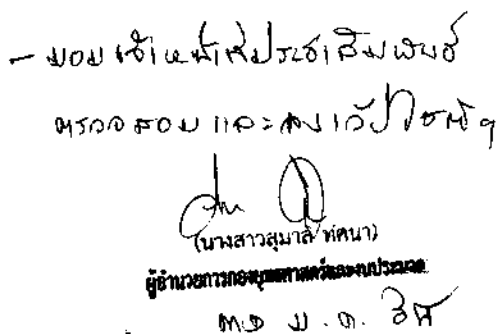 - มอบเจ้าหน้าที่ประชาสัมพันธ์
ตรวจสอบ และลงเว็บไซต์ฯ
(นางสาวสุมาลี ทัศนา)
ผู้อำนวยการกองยุทธศาสตร์และงบประมาณ
ม.ค.